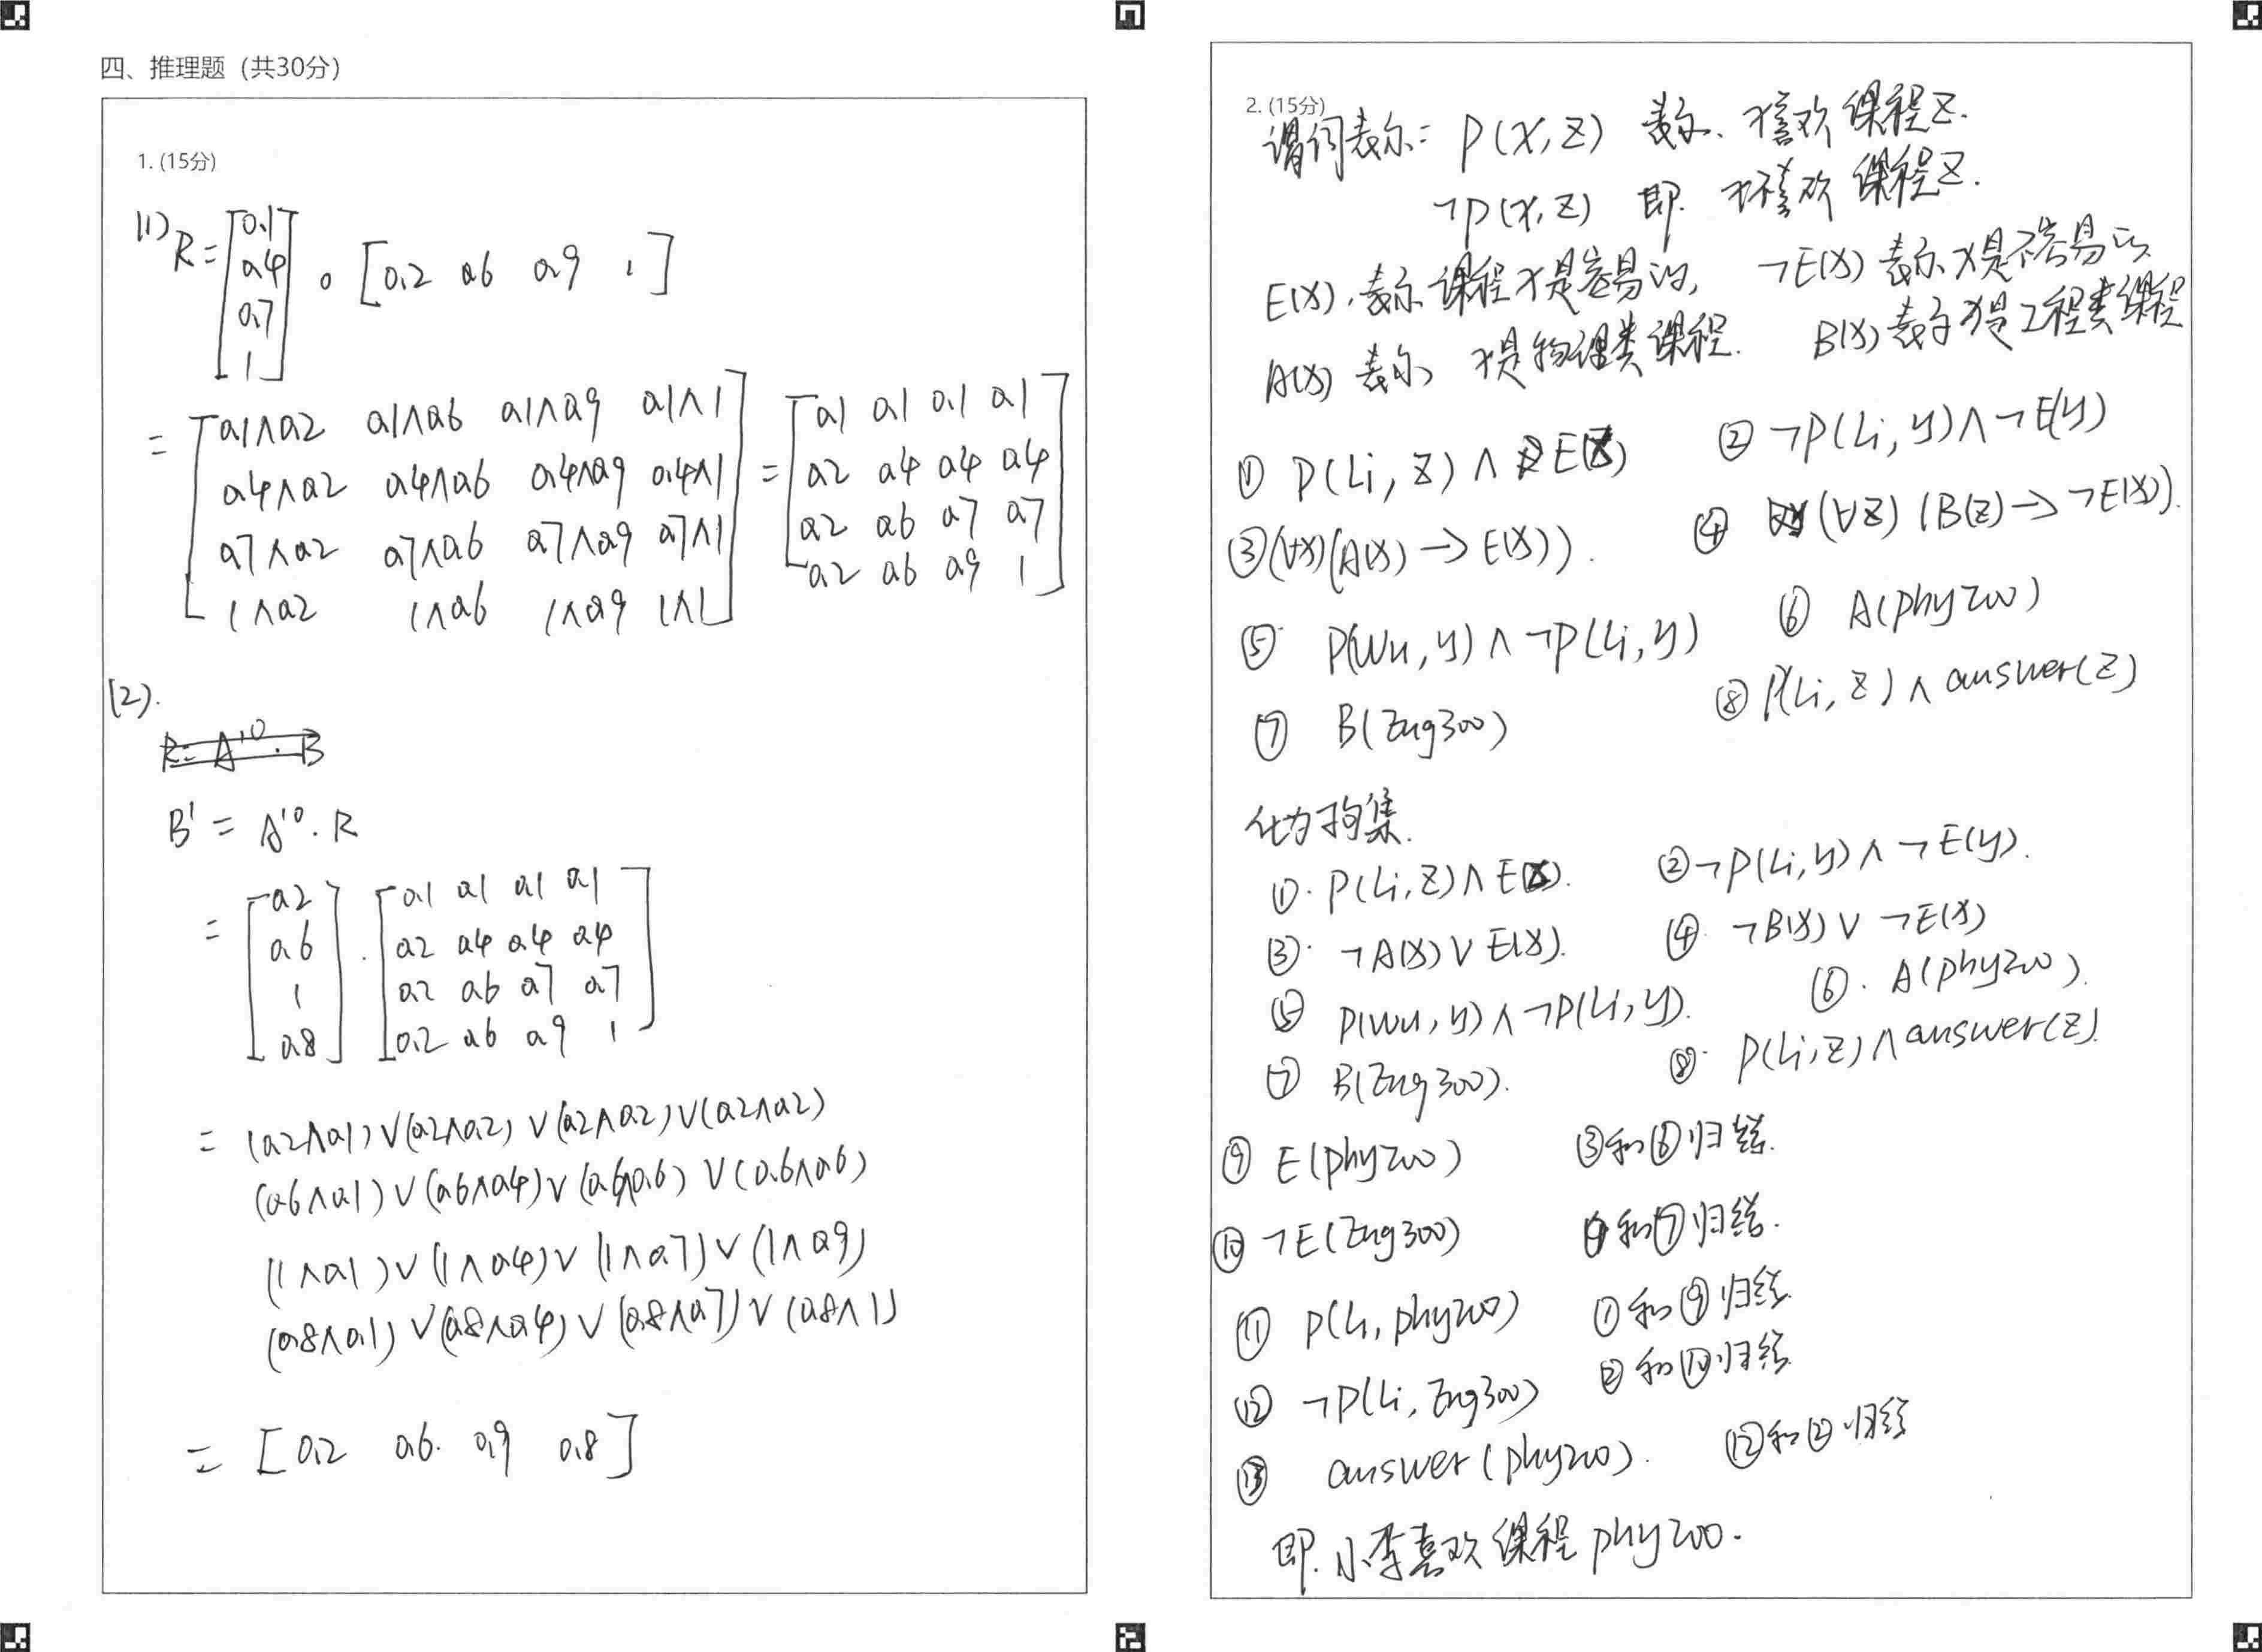 四、推理题 (共30分)
1. (15分)
(1) R = [0.1 0.4 0.7 1] ∘ [0.2 0.6 0.9 1]
= [0.1∧0.2 0.1∧0.6 0.1∧0.9 0.1∧1] = [0.1 0.1 0.1 0.1]
0.4∧0.2 0.4∧0.6 0.4∧0.9 0.4∧1 0.2 0.4 0.4 0.4
0.7∧0.2 0.7∧0.6 0.7∧0.9 0.7∧1 0.2 0.6 0.7 0.7
1∧0.2 1∧0.6 1∧0.9 1∧1 0.2 0.6 0.9 1
(2).
B' = A'∘. R
= [0.2 0.6 1 0.8] . [0.1 0.1 0.1 0.1
0.2 0.4 0.4 0.4
0.2 0.6 0.7 0.7
0.2 0.6 0.9 1]
= (0.2∧0.1)∨(0.2∧0.2)∨(0.2∧0.2)∨(0.2∧0.2)
(0.6∧0.1)∨(0.6∧0.4)∨(0.6∧0.6)∨(0.6∧0.6)
(1∧0.1)∨(1∧0.4)∨(1∧0.7)∨(1∧0.9)
(0.8∧0.1)∨(0.8∧0.4)∨(0.8∧0.7)∨(0.8∧1)
= [0.2 0.6. 0.9 0.8]
2. (15分)
谓词表示: P(x,z) 表示. x喜欢课程z.
¬P(x,z) 即. x不喜欢课程z.
E(x).表示课程x是容易的, ¬E(x)表示x是不容易的
A(x)表示 x是物理类课程. B(x)表示x是工程类课程
① P(Li, z) ∧ E(z) ② ¬P(Li, y)∧¬E(y)
③(∀x)(A(x) → E(x)). ④ (∀z) (B(z) → ¬E(x)).
⑤ P(Wu, y) ∧ ¬P(Li, y) ⑥ A(phy200)
⑦ B(Eng300) ⑧ P(Li, z) ∧ answer(z)
化为子句集.
①. P(Li,z)∧E(z). ②¬P(Li,y)∧¬E(y).
③. ¬A(x)∨E(x). ④. ¬B(x)∨¬E(x)
⑤ P(Wu,y)∧¬P(Li,y). ⑥. A(phy200).
⑦ B(Eng300). ⑧. P(Li,z)∧answer(z).
⑨ E(phy200) ③和⑥归结.
⑩ ¬E(Eng300) ④和⑦归结.
⑪ P(Li, phy200) ①和⑨归结
⑫ ¬P(Li, Eng300) ②和⑩归结
⑬ answer(phy200). ⑫和②归结
即.小李喜欢课程phy200.